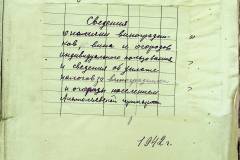 Сведения
о наличии виноградни-
ков, вина и огородов
индивидуального пользования
и сведения об уплате
налогов за виноградники
и огороды поселения
1942 г.